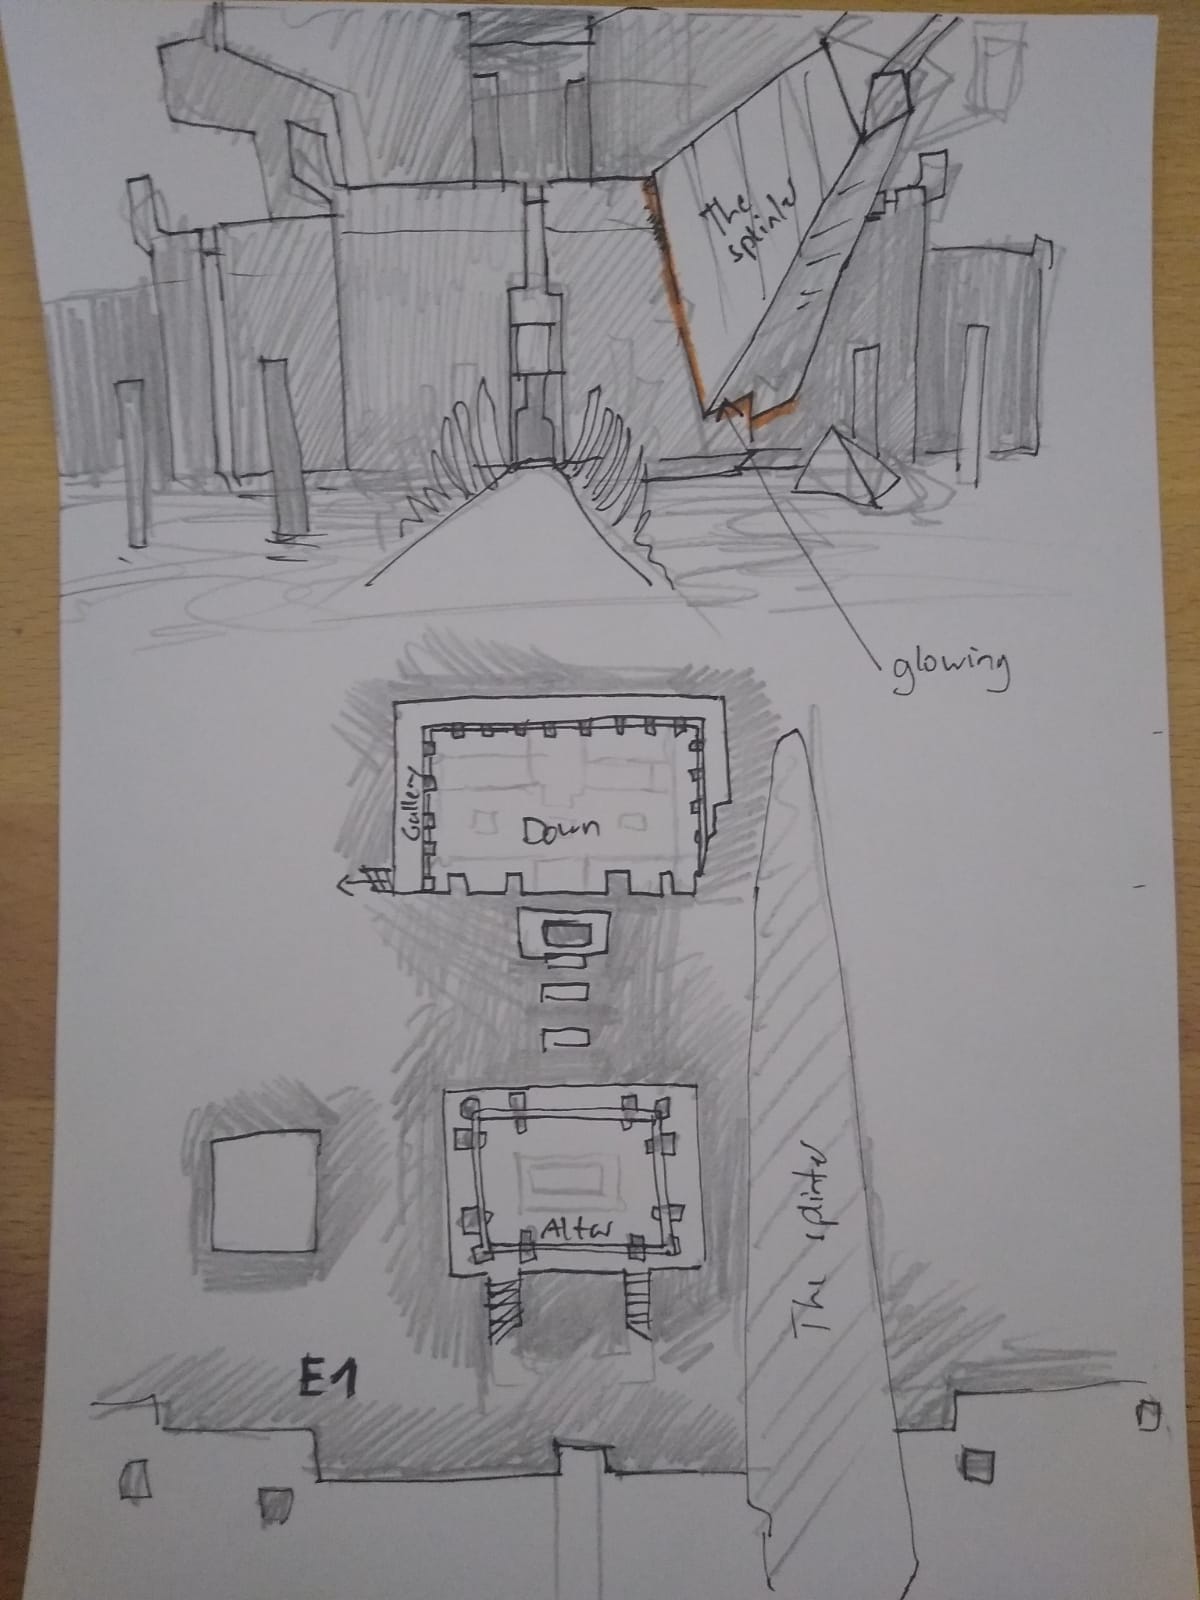 The
splinter
glowing
Gallery
Down
Altar
The splinter
E1